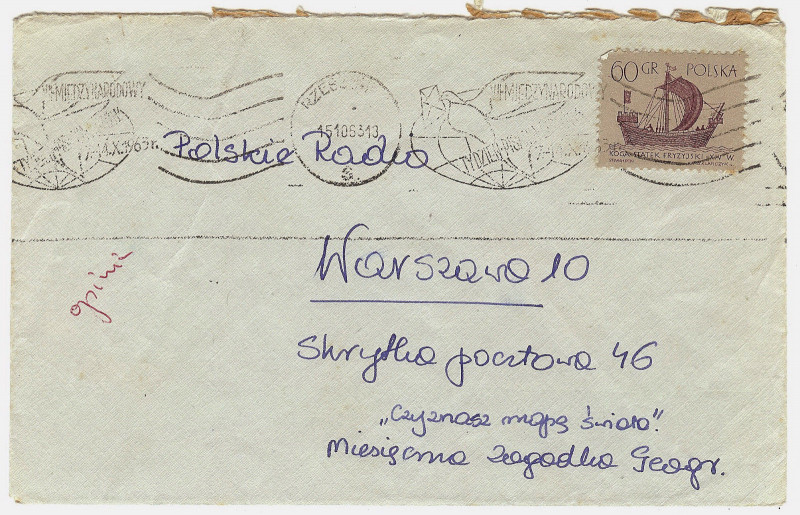 VII MIĘDZYNARODOWY
RZESZÓW
VII MIĘDZYNARODOWY
60 GR POLSKA
15106313
TYDZIEŃ
X.1963
KOGA-STATEK FRYZYJSKI XIV W.
Polskie Radio
Warszawa 10
opinii
Skrytka pocztowa 46
„Czy znasz mapę świata".
Miesięczna Zagadka Geogr.